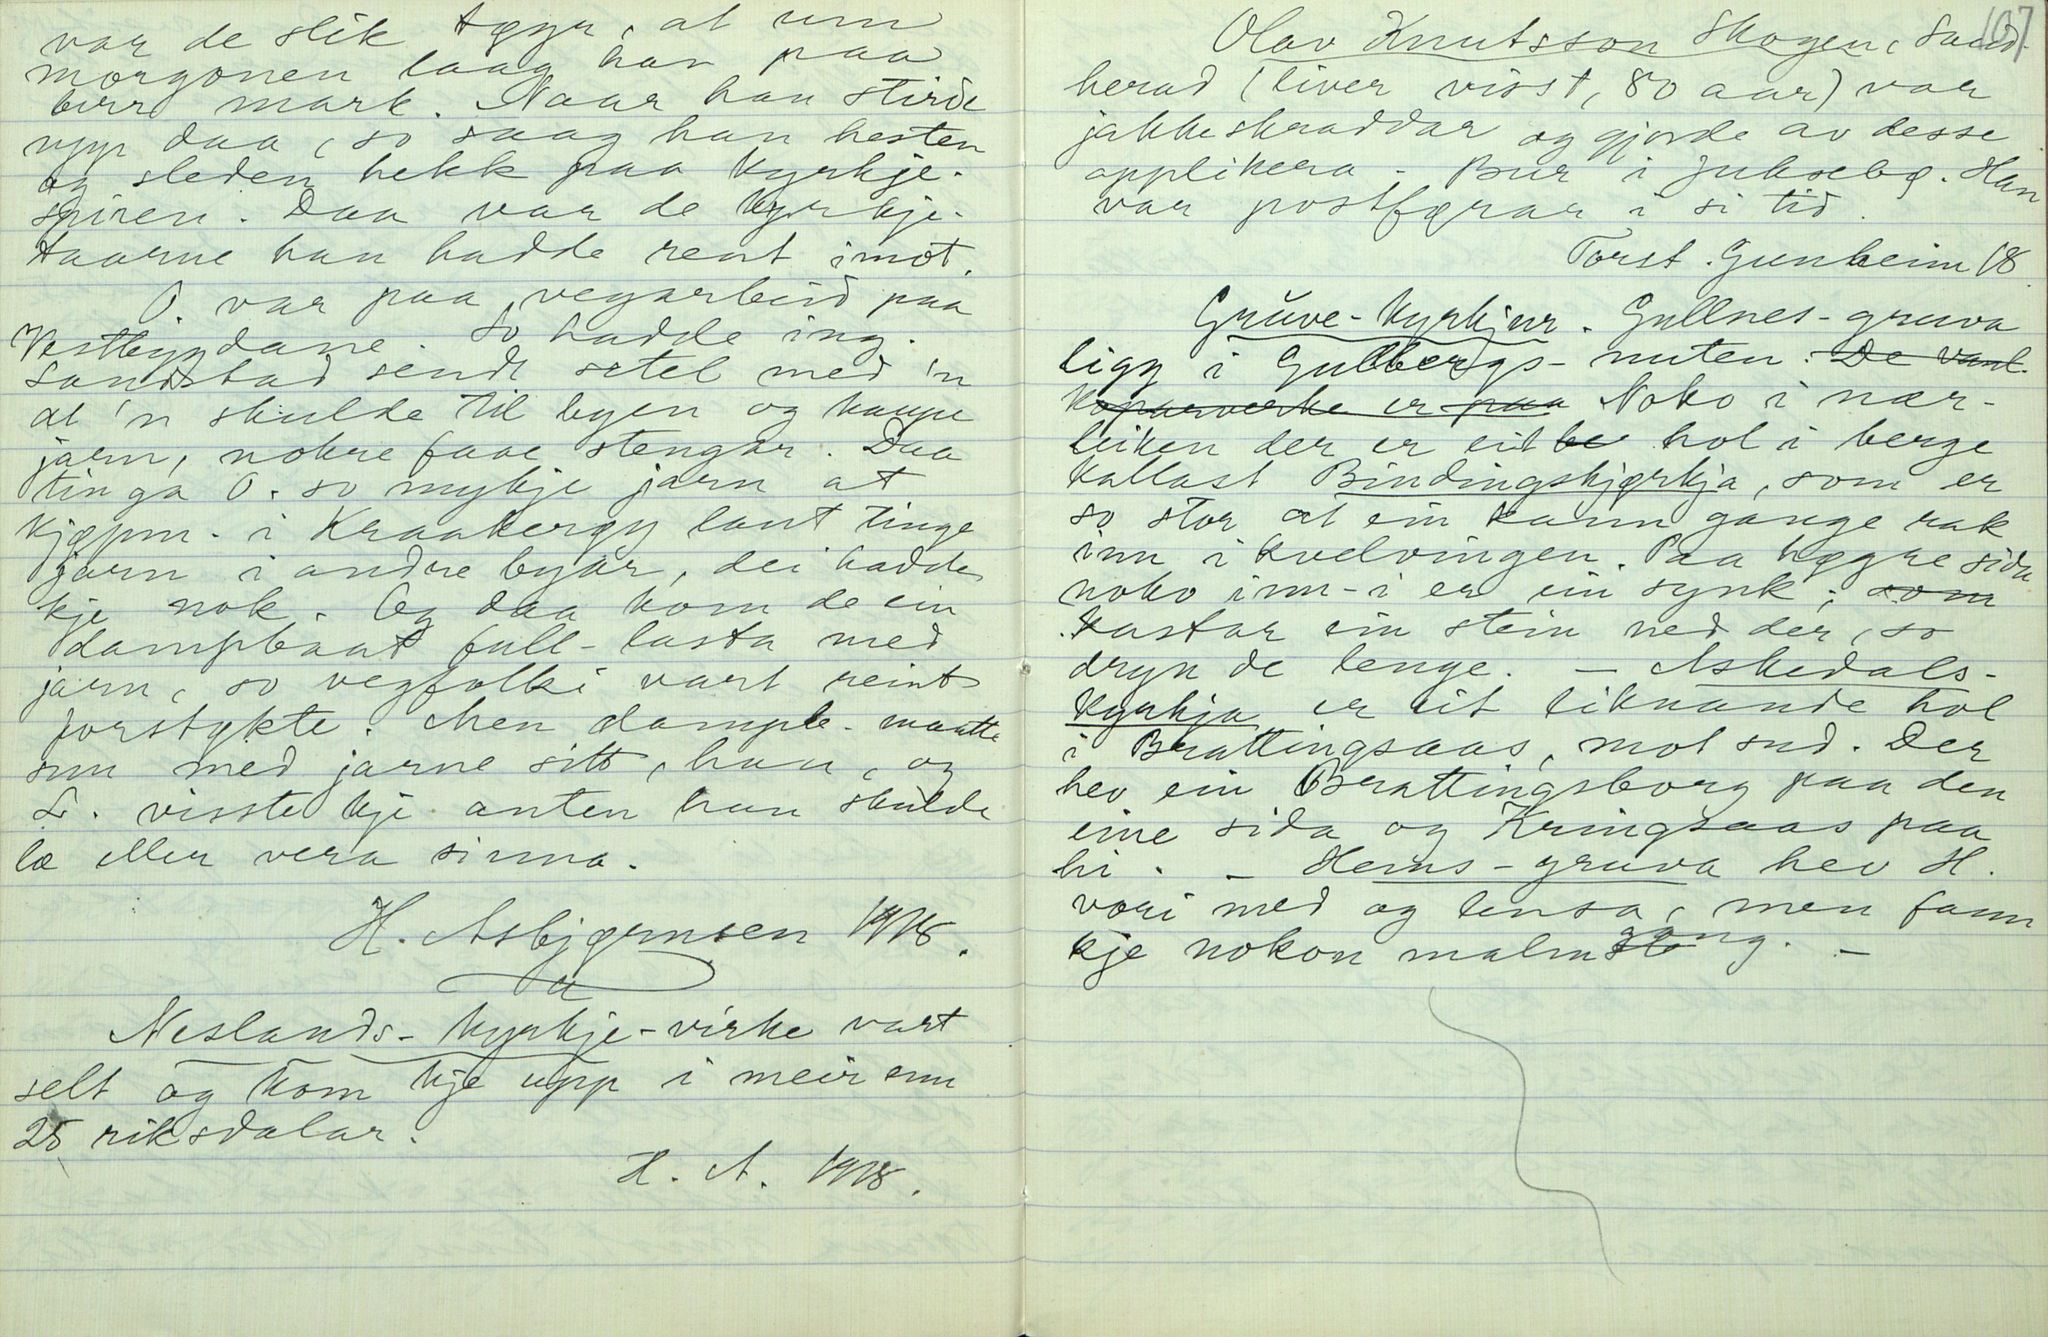 var de slik tøyr, at um
morgonen laag han paa
berr mark. Naar han stirde
upp daa, so saag han hesten
og sleden hekk paa kyrkje-
spiren. Daa var de kyrkje-
taarne han hadde rent imot.
O. var paa vegarbeid paa
Vestbygdane. So hadde ing.
Sandstad sendt setel med 'n
at 'n skulde til byen og kaupe
jarn, nokre faae stengar. Daa
tinga O. so mykje jarn at
kjøpm. i Kraakerøy laut tinge
jarn i andre byar, dei hadde
kje nok. Og daa kom de ein
dampbaat full-lasta med
jarn, so vegfolki vart reint
forstøkte. Men dampb. maatte
snu med jarne sitt, han, og
S. visste kje anten han skulde
læ eller vera sinna.
H. Asbjørnsen 1918.
Neslands-kyrkje-virke vart
selt og kom kje upp i meir enn
25 riksdalar.
H. A. 1918.
107
Olav Knutsson Skogen, Saud-
herad (liver visst, 80 aar) var
jakkeskraddar og gjorde av desse
applikera. Bur i Juksebø. Han
var postførar i si tid.
Torst. Gunheim 18
Gruve-kyrkjur. Gullnes-gruva
ligg i Gullbergs-nuten. De vanl.
Koparverke er paa Noko i nær-
leiken der er eit be hol i berge
kallast Bindingskjørkja, som er
so stor at ein kann gange rak
inn i kvelvingen. Paa høgre sida
noko inn-i er ein synk; som
kastar ein stein ned der, so
dryn de lenge. - Askedals-
kyrkja er eit liknande hol
i Brattingsaas, mot sud. Der
hev ein Brattingsborg paa den
eine sida og Kringsaas paa
hi. - Hems-gruva hev H.
vori med og lensa, men fann
kje nokon malmgang. -